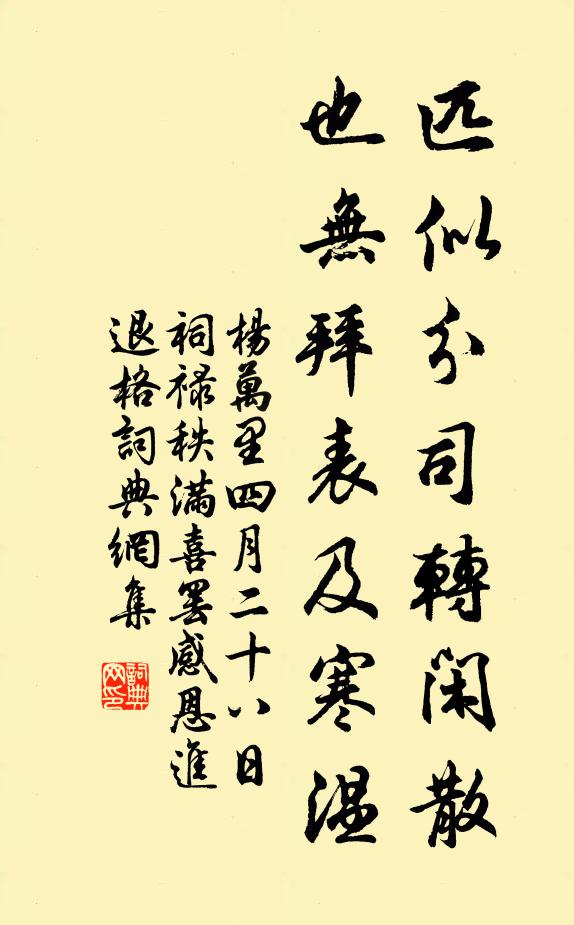 匹似分司轉閑散
也無拜表及寒溫
楊萬里四月二十八日
祠祿秩滿喜罷感恩進
退格詞典網集
詞典网印